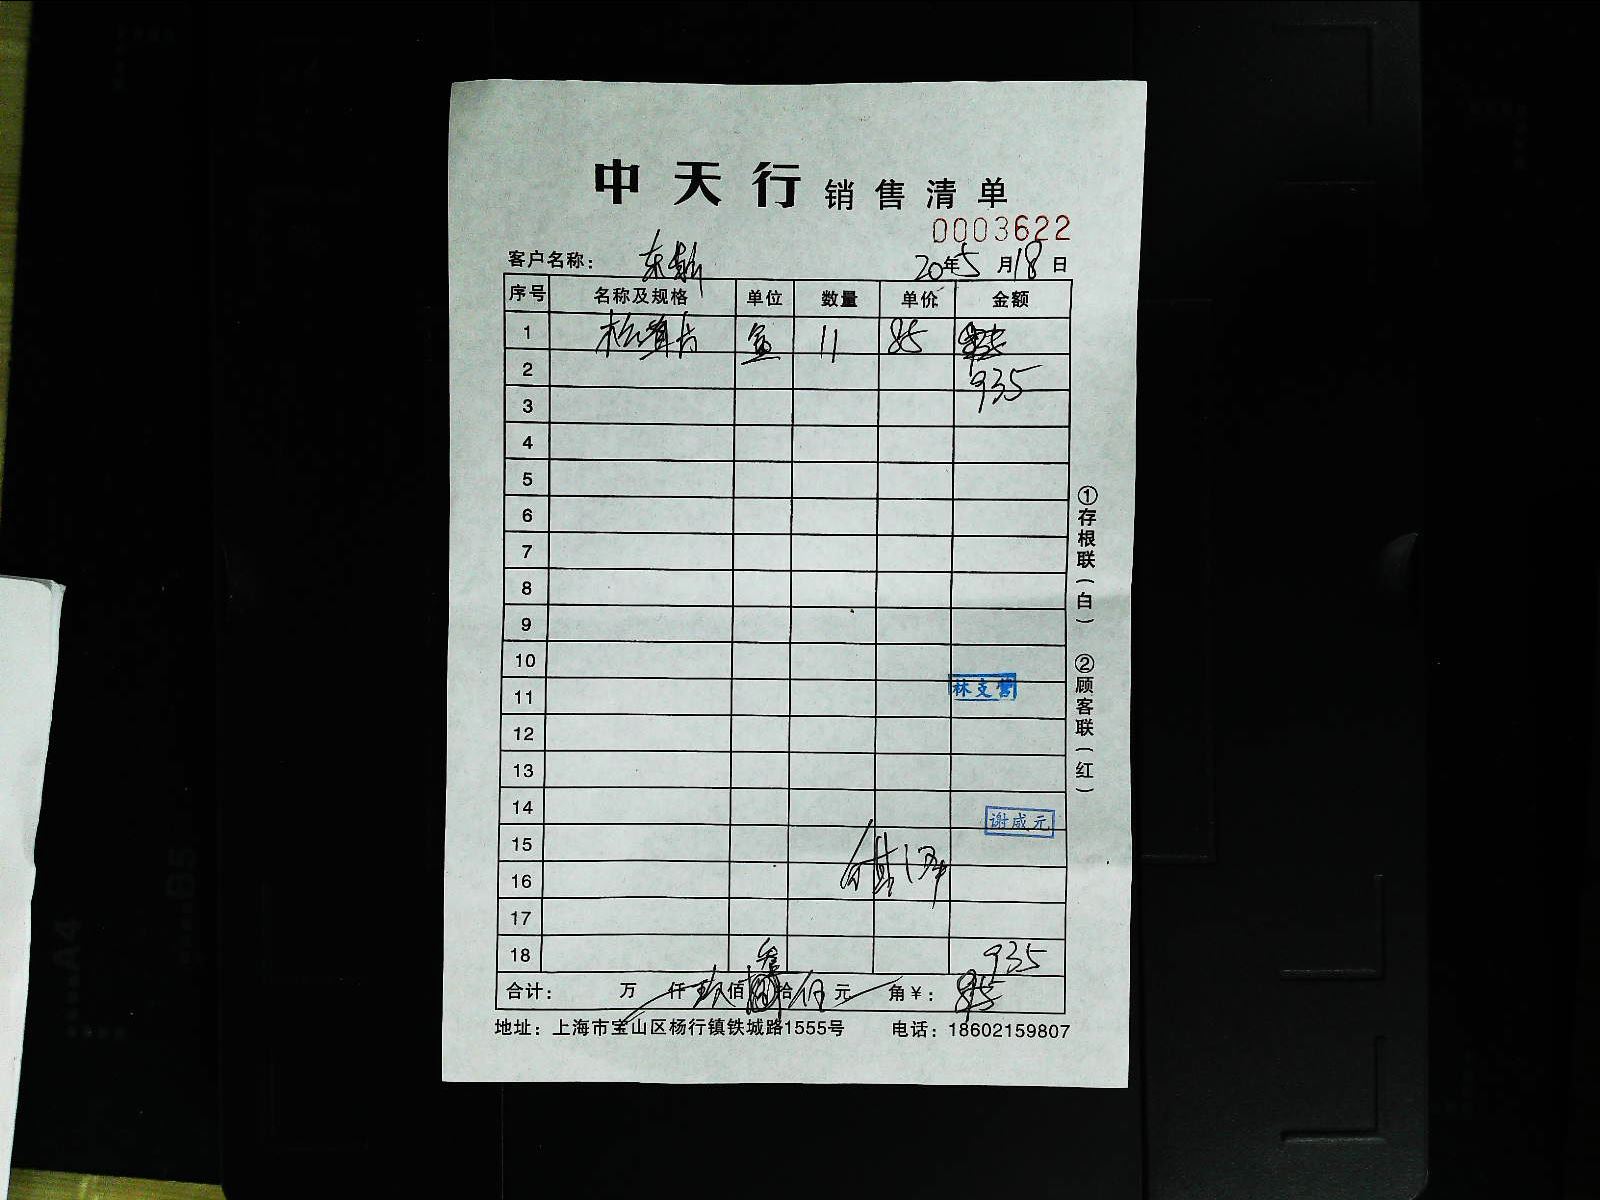 中天行 销售清单
0003622
客户名称: 20年5月18日
序号 名称及规格 单位 数量 单价 金额
1 盒 11 85
2 935
3
4
5
6
7
8
9
10
11 林支营
12
13
14 谢咸元
15
16
17
18 935
合计: 万 仟 玖佰 叁拾 伍元 角¥:
地址:上海市宝山区杨行镇铁城路1555号 电话:18602159807
①存根联(白) ②顾客联(红)